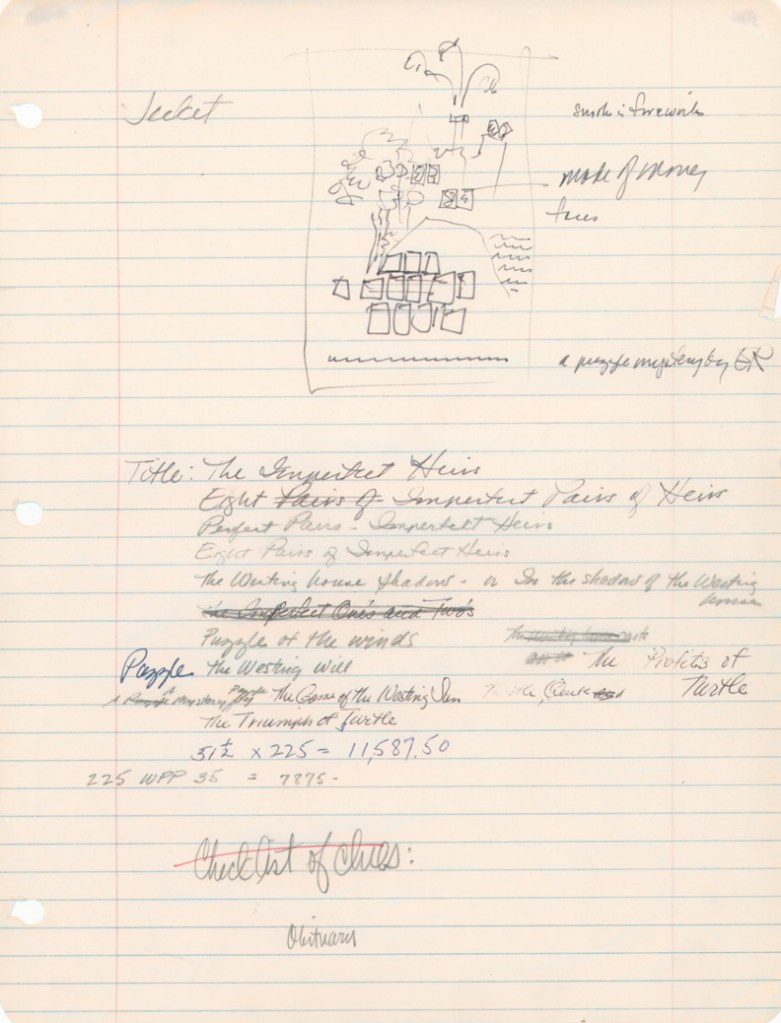 Jacket
smoke is fireworks
made of money
trees
a puzzle mystery by ER
Title: The Imperfect Heirs
Eight Pairs of Imperfect Pairs of Heirs
Perfect Pairs - Imperfect Heirs
Eight Pairs of Imperfect Heirs
The Westing house shadow - or In the shadow of the Westing house
The Imperfect One's and Two's
Puzzle of the winds
Puzzle The Westing Will
The Profits of Turtle
A Puzzle Mystery The Game of the Westing Turtle
The Triumph of Turtle
51½ x 225 = 11,587.50
225 WPP 35 = 7875-
Check list of clues:
Obituary